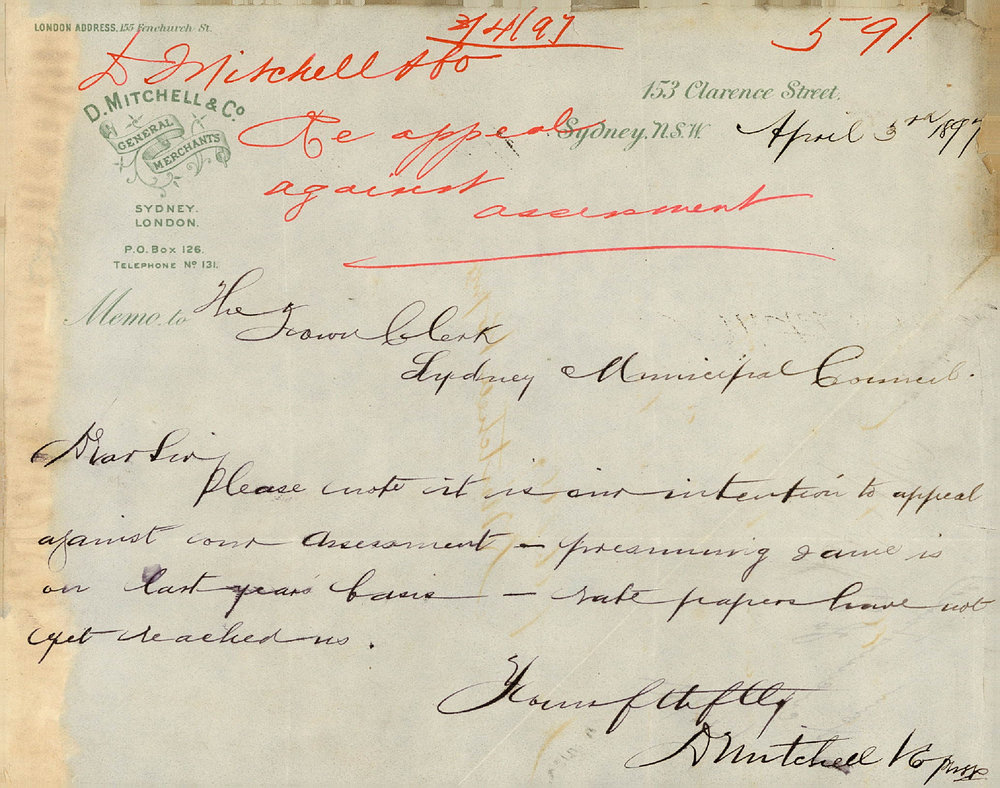 LONDON ADDRESS, 155 Fenchurch St.
3/4/97
591
D Mitchell & Co
D. MITCHELL & Co
GENERAL
MERCHANTS
SYDNEY.
LONDON.
P.O. Box 126.
TELEPHONE No 131.
153 Clarence Street,
Sydney, N.S.W. April 3rd 1897
Re appeal
against
assessment
Memo. to The
Town Clerk
Sydney Municipal Council.
Dear Sir
Please note it is our intention to appeal
against our assessment – presuming same is
on last years basis – rate papers have not
yet reached us.
Yours
D Mitchell & Co